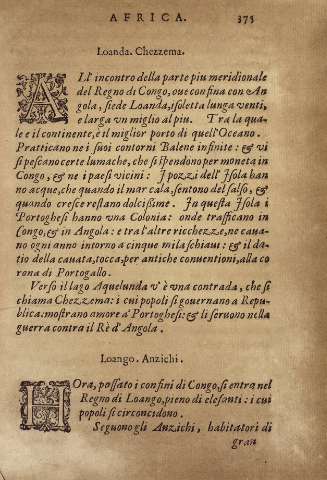 AFRICA. 375
Loanda. Chezzema.
ALl' incontro della parte piu meridionale
del Regno di Congo, oue confina con An-
gola, siede Loanda, isoletta lunga venti,
e larga vn miglio al piu. Tra la qua-
le e il continente, è il miglior porto di quell' Oceano.
Pratticano ne i suoi contorni Balene infinite: & vi
si pescano certe lumache, che si spendono per moneta in
Congo, & ne i paesi vicini: I pozzi dell' Isola han
no acque, che quando il mar cala, sentono del salso, &
quando cresce restano dolcissime. In questa Isola i
Portoghesi hanno vna Colonia: onde trafficano in
Congo, & in Angola: e tra l'altre ricchezze, ne caua-
no ogni anno intorno a cinque mila schiaui: & il da-
tio della cauata, tocca, per antiche conuentioni, alla co
rona di Portogallo.
Verso il lago Aquelunda v' è vna contrada, che si
chiama Chezzema: i cui popoli si gouernano a Repu-
blica. mostrano amore a' Portoghesi: & li seruono nella
guerra contra il Rè d'Angola.
Loango. Anzichi.
HOra, passato i confini di Congo, si entra nel
Regno di Loango, pieno di elefanti: i cui
popoli si circoncidono.
Seguono gli Anzichi, habitatori di
gran